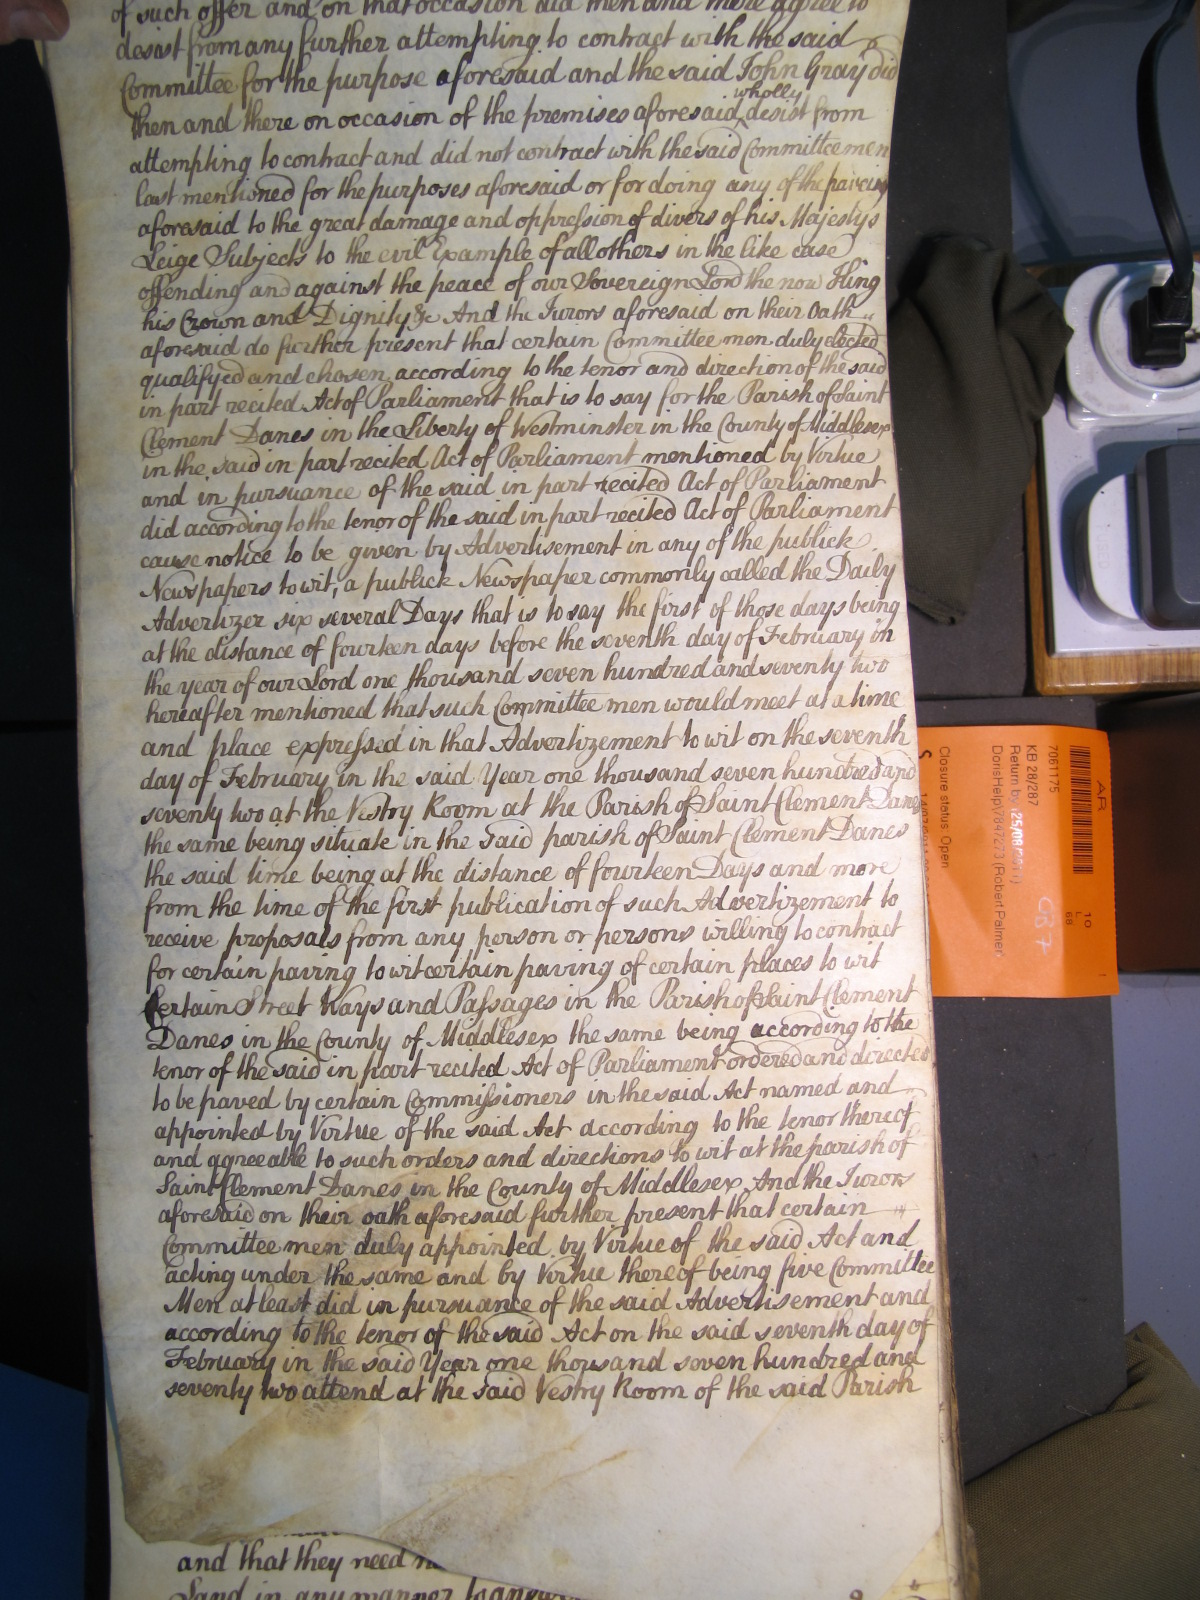 of such offer and on that occasion did then and there agree to
desist from any further attempting to contract with the said
Committee for the purpose aforesaid and the said John Gray did
wholly
then and there on occasion of the premises aforesaid desist from
attempting to contract and did not contract with the said Committee men
last mentioned for the purposes aforesaid or for doing any of the paving
aforesaid to the great damage and oppression of divers of his Majestys
Leige Subjects to the evil Example of all others in the like case
offending and against the peace of our Sovereign Lord the now King
his Crown and Dignity &c And the Jurors aforesaid on their Oath
aforesaid do further present that certain Committee men duly elected
qualifyed and chosen according to the tenor and direction of the said
in part recited Act of Parliament that is to say for the Parish of Saint
Clement Danes in the Liberty of Westminster in the County of Middlesex
in the said in part recited Act of Parliament mentioned by Virtue
and in pursuance of the said in part recited Act of Parliament
did according to the tenor of the said in part recited Act of Parliament
cause notice to be given by Advertisement in any of the publick
Newspapers to wit, a publick Newspaper commonly called the Daily
Advertizer six several Days that is to say the first of those days being
at the distance of fourteen days before the seventh day of February in
the year of our Lord one thousand seven hundred and seventy two
hereafter mentioned that such Committee men would meet at a time
and place expressed in that Advertizement to wit on the seventh
day of February in the said Year one thousand seven hundred and
seventy two at the Vestry Room at the Parish of Saint Clement Danes
the same being situate in the said parish of Saint Clement Danes
the said time being at the distance of fourteen Days and more
from the time of the first publication of such Advertizement to
receive proposals from any person or persons willing to contract
for certain paving to wit certain paving of certain places to wit
Certain Street Ways and Passages in the Parish of Saint Clement
Danes in the County of Middlesex the same being according to the
tenor of the said in part recited Act of Parliament ordered and directed
to be paved by certain Commissioners in the said Act named and
appointed by Virtue of the said Act according to the tenor thereof
and agreeable to such orders and directions to wit at the parish of
Saint Clement Danes in the County of Middlesex And the Jurors
aforesaid on their oath aforesaid further present that certain
Committee men duly appointed by Virtue of the said Act and
acting under the same and by Virtue thereof being five Committee
Men at least did in pursuance of the said Advertisement and
according to the tenor of the said Act on the said seventh day of
February in the said Year one thousand seven hundred and
seventy two attend at the said Vestry Room of the said Parish
and that they need
Land in any manner
AR
7061175
KB 28/287
Return by 25/08/2011
(Robert Palmer)
Closure status: Open